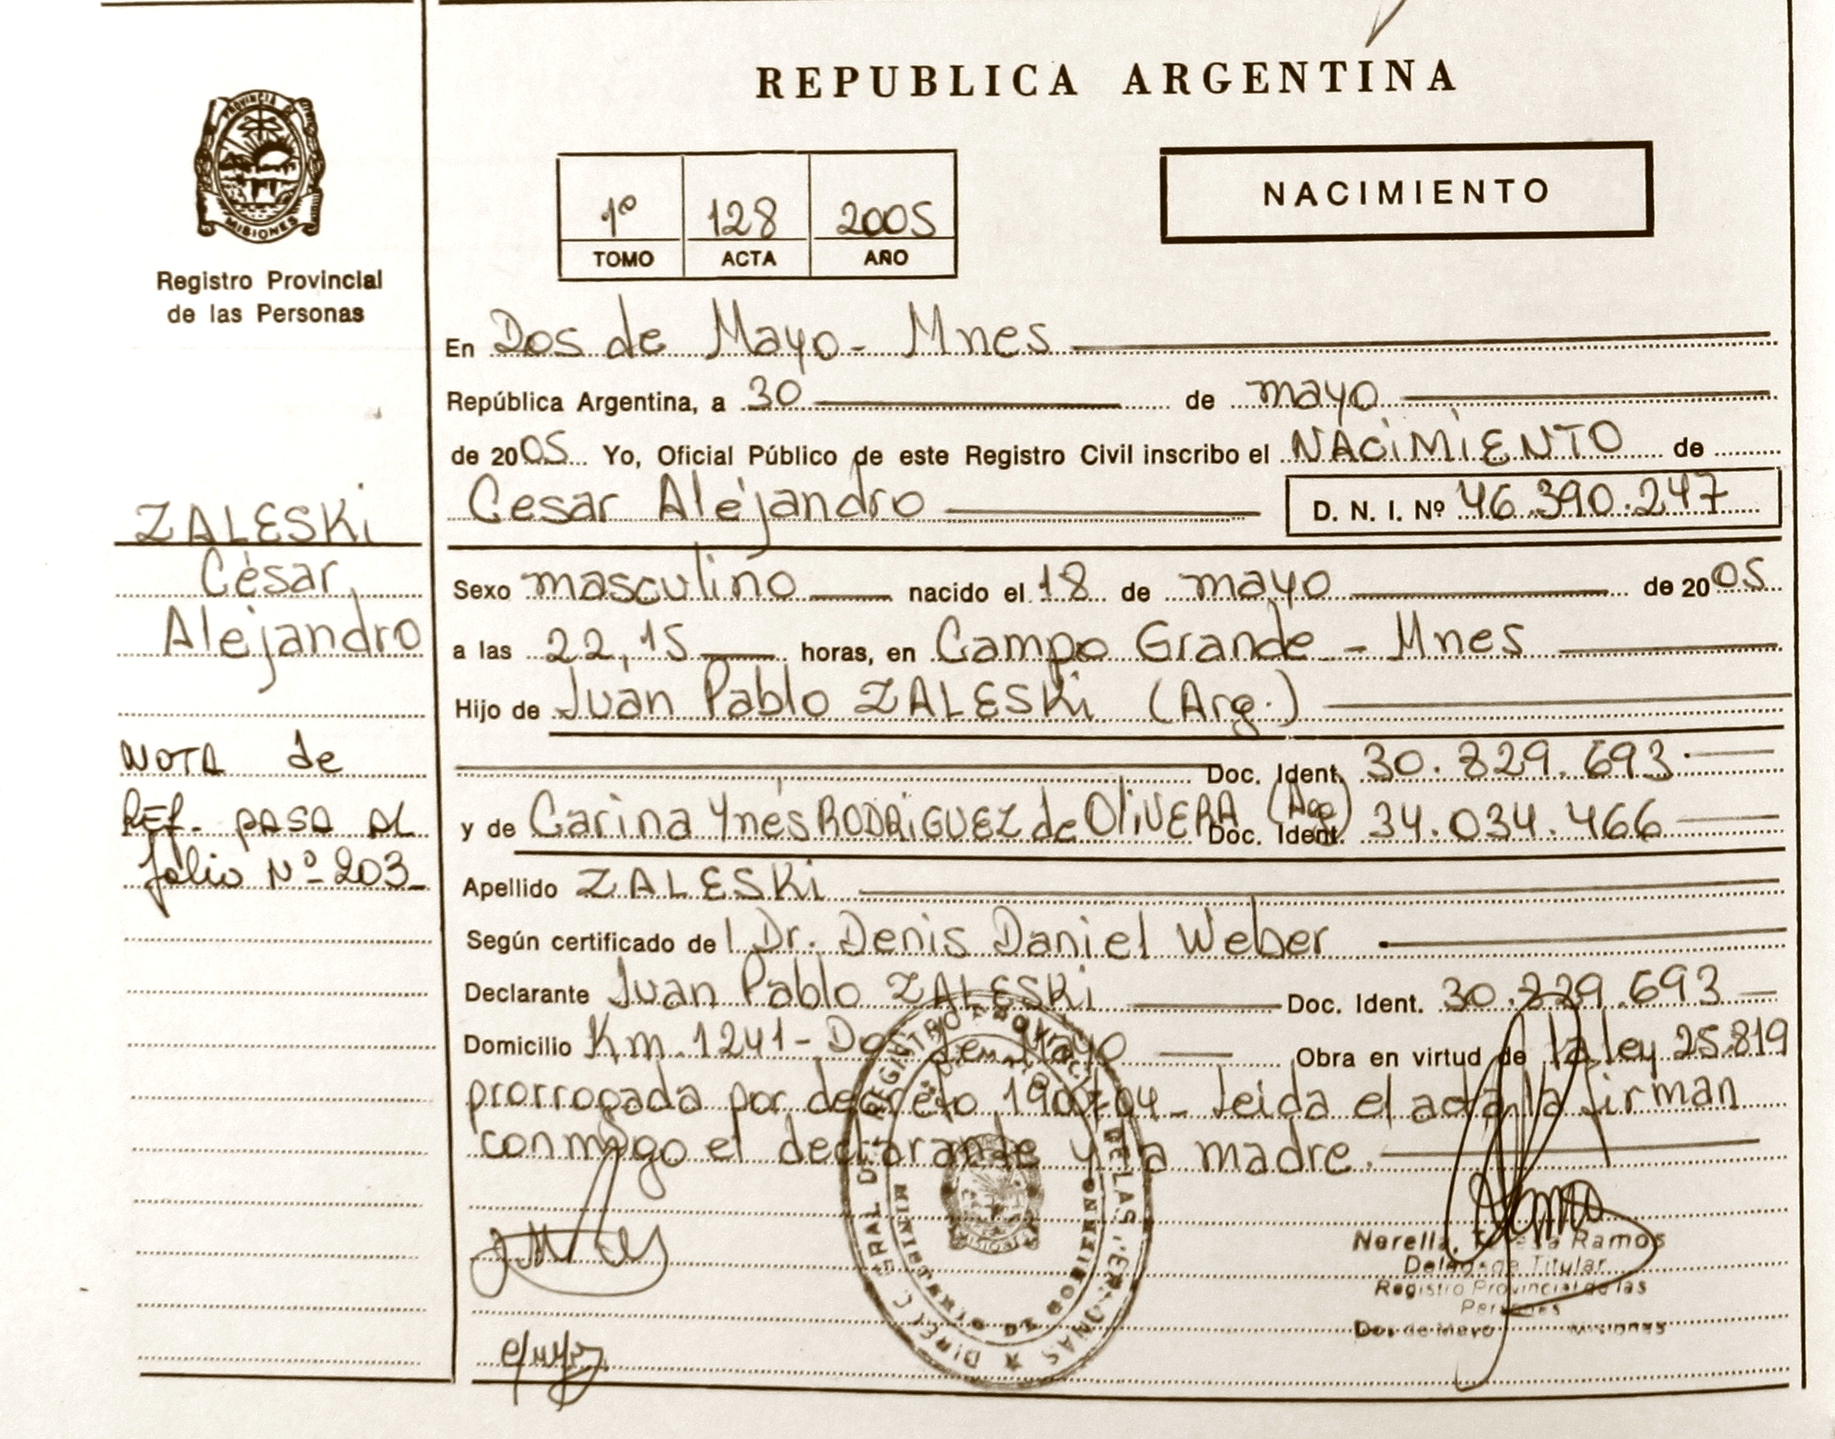 REPUBLICA ARGENTINA
PROVINCIA DE
MISIONES
Registro Provincial
de las Personas
NACIMIENTO
1º 128 2005
TOMO ACTA AÑO
En Dos de Mayo - Mnes
República Argentina, a 30 de mayo
de 2005 Yo, Oficial Público de este Registro Civil inscribo el NACIMIENTO de
Cesar Alejandro D. N. I. Nº 46.390.247
ZALESKI
César
Alejandro
Sexo masculino nacido el 18 de mayo de 2005
a las 22,15 horas, en Campo Grande - Mnes
Hijo de Juan Pablo ZALESKI (Arg.)
Doc. Ident. 30.829.693
y de Carina Ynés RODRIGUEZ de OLIVERA (Arg) Doc. Ident. 34.034.466
NOTA de
REF. PASA AL
folio Nº 203
Apellido ZALESKI
Según certificado de Dr. Denis Daniel Weber
Declarante Juan Pablo ZALESKI Doc. Ident. 30.829.693
Domicilio Km 1241 - Dos de Mayo Obra en virtud de la ley 25.819
prorrogada por decreto 190 /04 - Leida el acta la firman
conmigo el declarante y la madre.
DIRECC GRAL DEL REGISTRO PROVINC. DE LAS PERSONAS
MINISTERIO DE GOBIERNO
MISIONES
Norella Teresa Ramos
Delegada Titular
Registro Provincial de las
Personas
Dos de Mayo Misiones